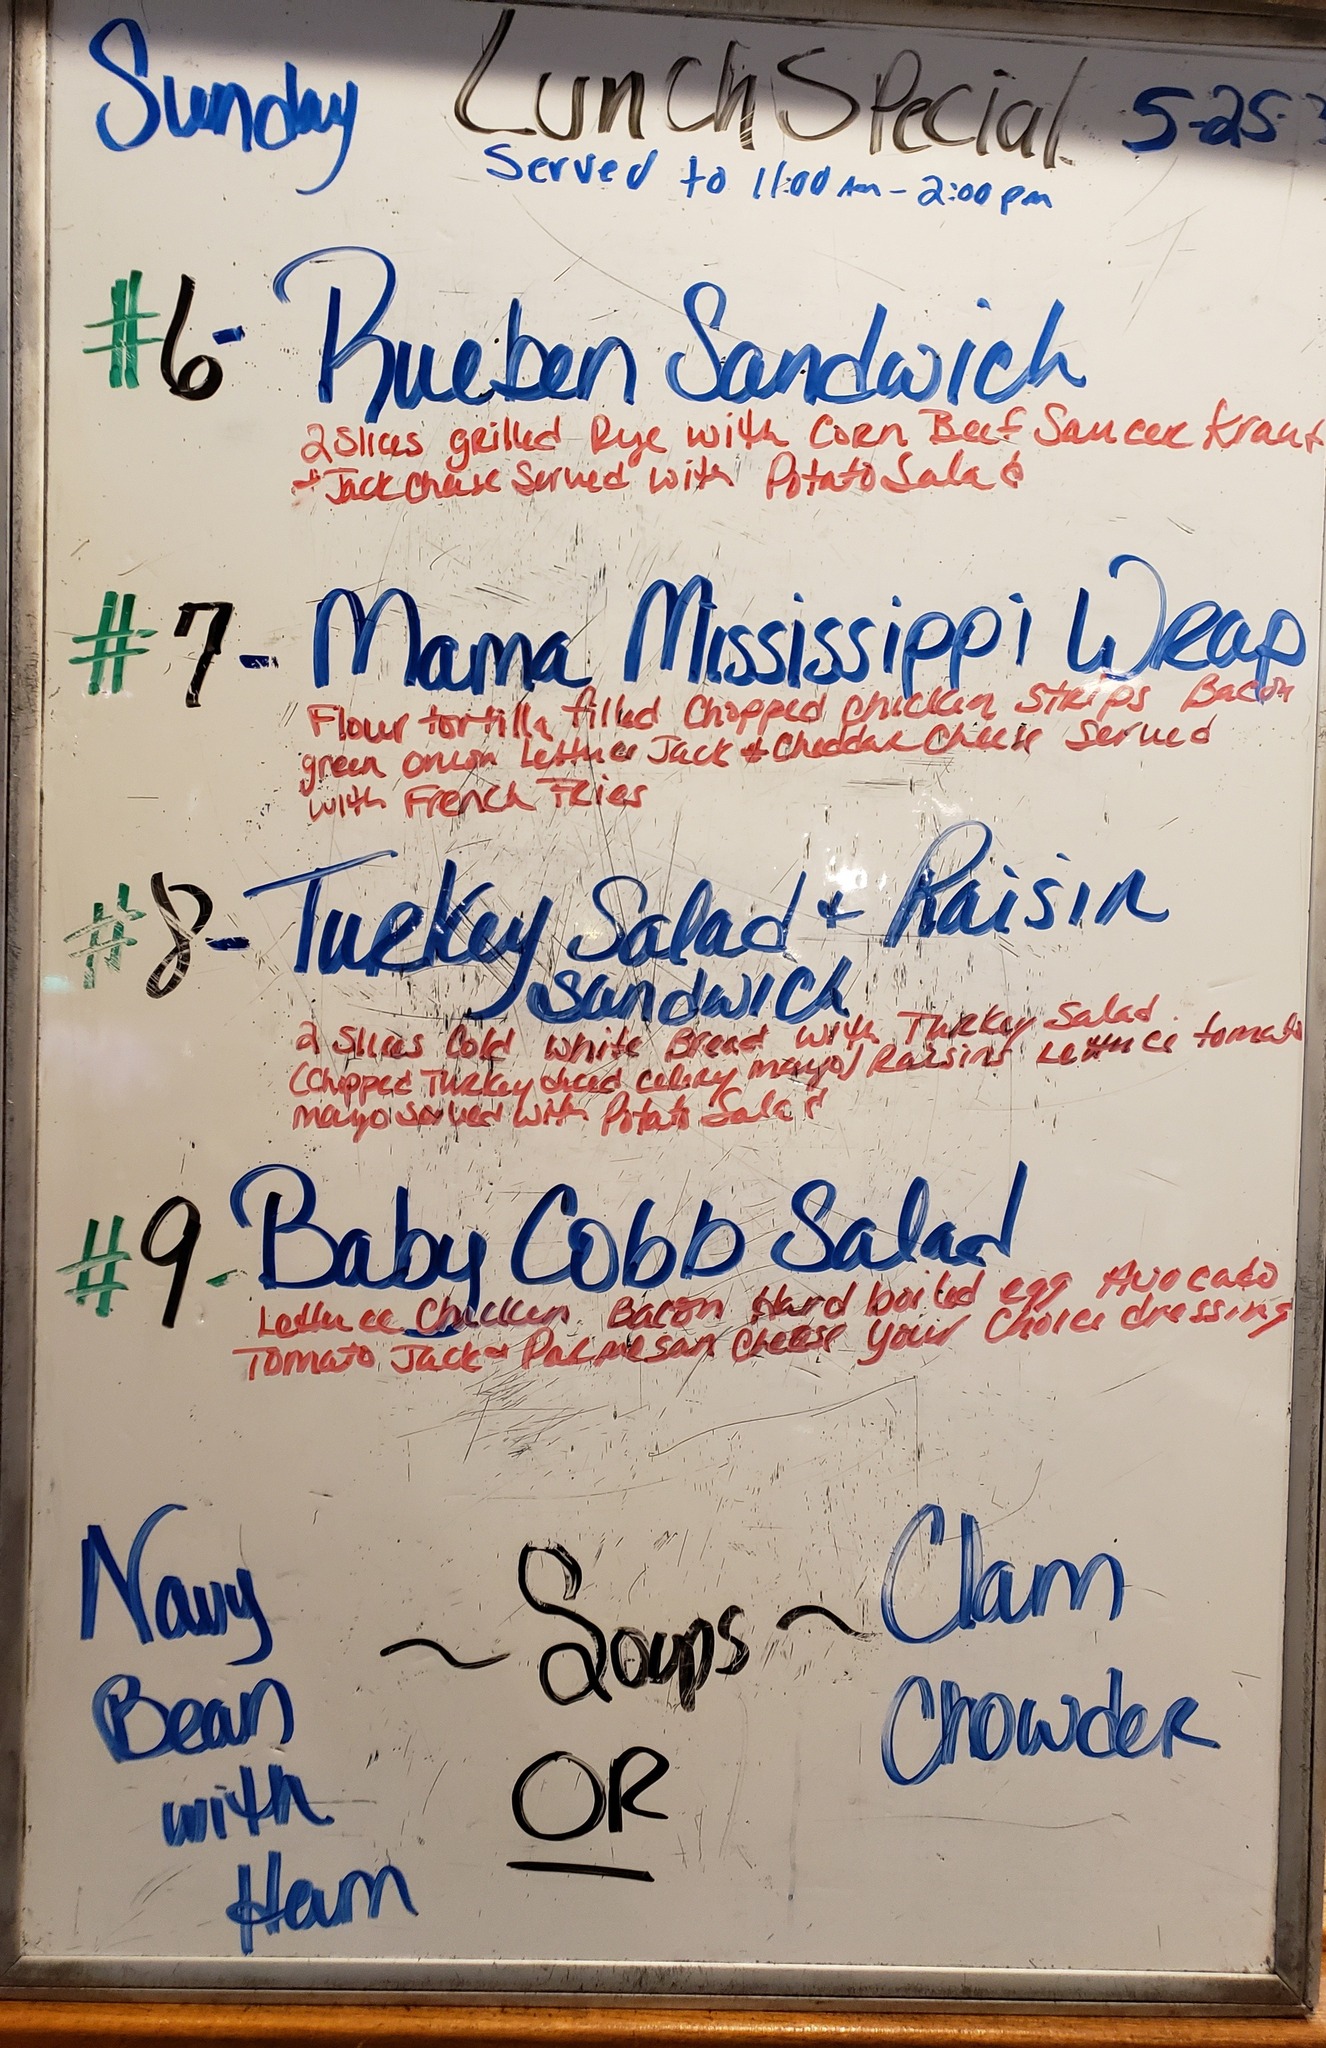 Sunday Lunch Special 5-25-
Served to 11:00 Am - 2:00 pm
#6- Rueben Sandwich
2 Slices grilled Rye with Corn Beef Saucer Kraut
+ Jack cheese Served with Potato Salad
#7- Mama Mississippi Wrap
Flour tortilla filled Chopped chicken strips Bacon
green onion Lettuce Jack + Cheddar Cheese Served
with French Fries
#8- Turkey Salad + Raisin
Sandwich
2 Slices Cold White Bread with Turkey Salad
(Chopped Turkey diced celery mayo) Raisins Lettuce tomato
mayo served with Potato Salad
#9- Baby Cobb Salad
Lettuce Chicken Bacon Hard boiled egg Avocado
Tomato Jack + Parmesan Cheese Your Choice dressing
Navy
Bean
with
Ham
~ Soups ~
OR
Clam
Chowder